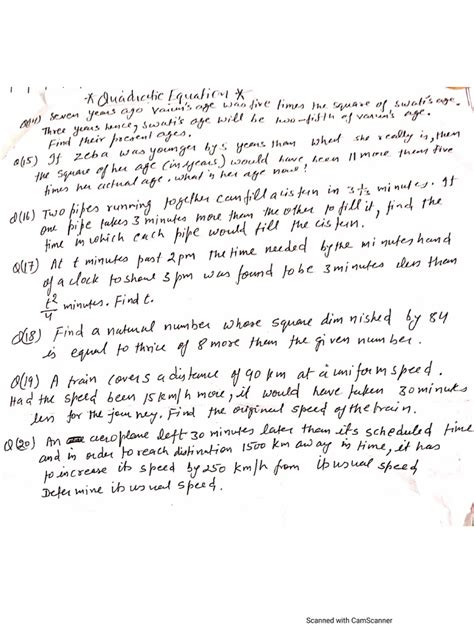 * Quadratic Equation *
Q(14) Seven years ago varun's age was five times the square of swati's age.
Three years hence, swati's age will be two-fifth of varun's age.
Find their present ages.
Q(15) If zeba was younger by 5 years than what she really is, then
the square of her age (in years) would have been 11 more than five
times her actual age. what is her age now?
Q(16) Two pipes running together can fill a cistern in 3 1/13 minutes. If
one pipe takes 3 minutes more than the other to fill it, find the
time in which each pipe would fill the cistern.
Q(17) At t minutes past 2pm the time needed by the minutes hand
of a clock to show 3pm was found to be 3 minutes less than
t²/4 minutes. Find t.
Q(18) Find a natural number whose square diminished by 84
is equal to thrice of 8 more than the given number.
Q(19) A train covers a distance of 90 km at a uniform speed.
Had the speed been 15 km/h more, it would have taken 30 minutes
less for the journey. Find the original speed of the train.
Q(20) An aeroplane left 30 minutes later than its scheduled time
and in order to reach distination 1500 km away in time, it has
to increase its speed by 250 km/h from its usual speed
Determine its usual speed.
Scanned with CamScanner